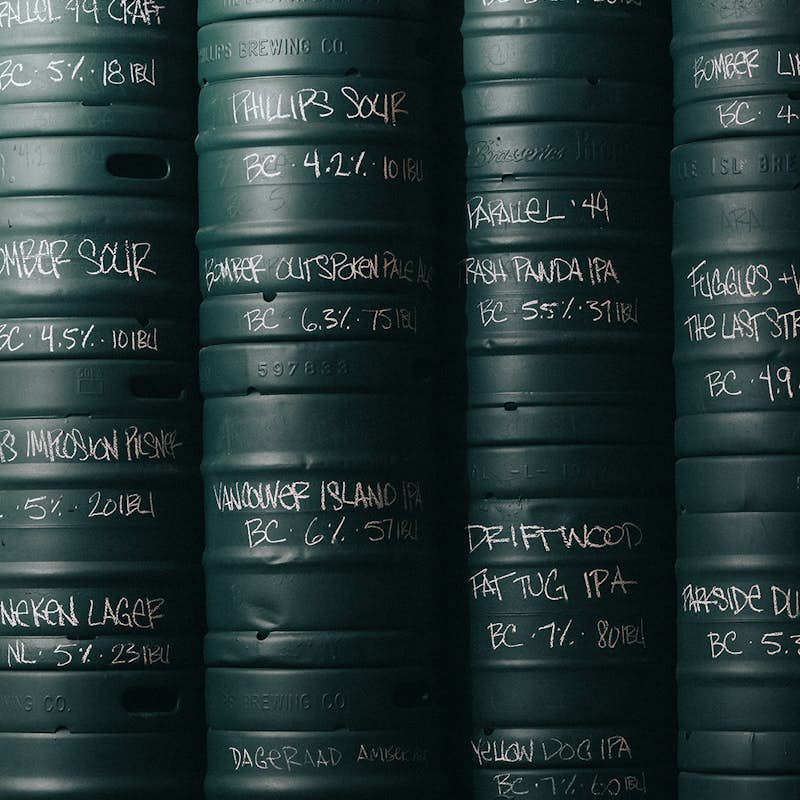 PARALLEL 49 CRAFT
BC · 5% · 18 IBU
BOMBER SOUR
BC · 4.5% · 10 IBU
IMPLOSION PILSNER
· 5% · 20 IBU
HEINEKEN LAGER
NL · 5% · 23 IBU
CO.
PHILLIPS BREWING CO.
PHILLIPS SOUR
BC · 4.2% · 10 IBU
BOMBER OUTSPOKEN PALE ALE
BC · 6.3% · 75 IBU
597833
VANCOUVER ISLAND IPA
BC · 6% · 57 IBU
BREWING CO
DAGERAAD AMBER
Brasseries
PARALLEL '49
TRASH PANDA IPA
BC · 5.5% · 37 IBU
DRIFTWOOD
FAT TUG IPA
BC · 7% · 80 IBU
YELLOW DOG IPA
BC · 7% · 60 IBU
BOMBER
BC · 4.
ISL BRE
FUGGLES +
THE LAST
BC · 4.9
PARKSIDE
BC · 5.3